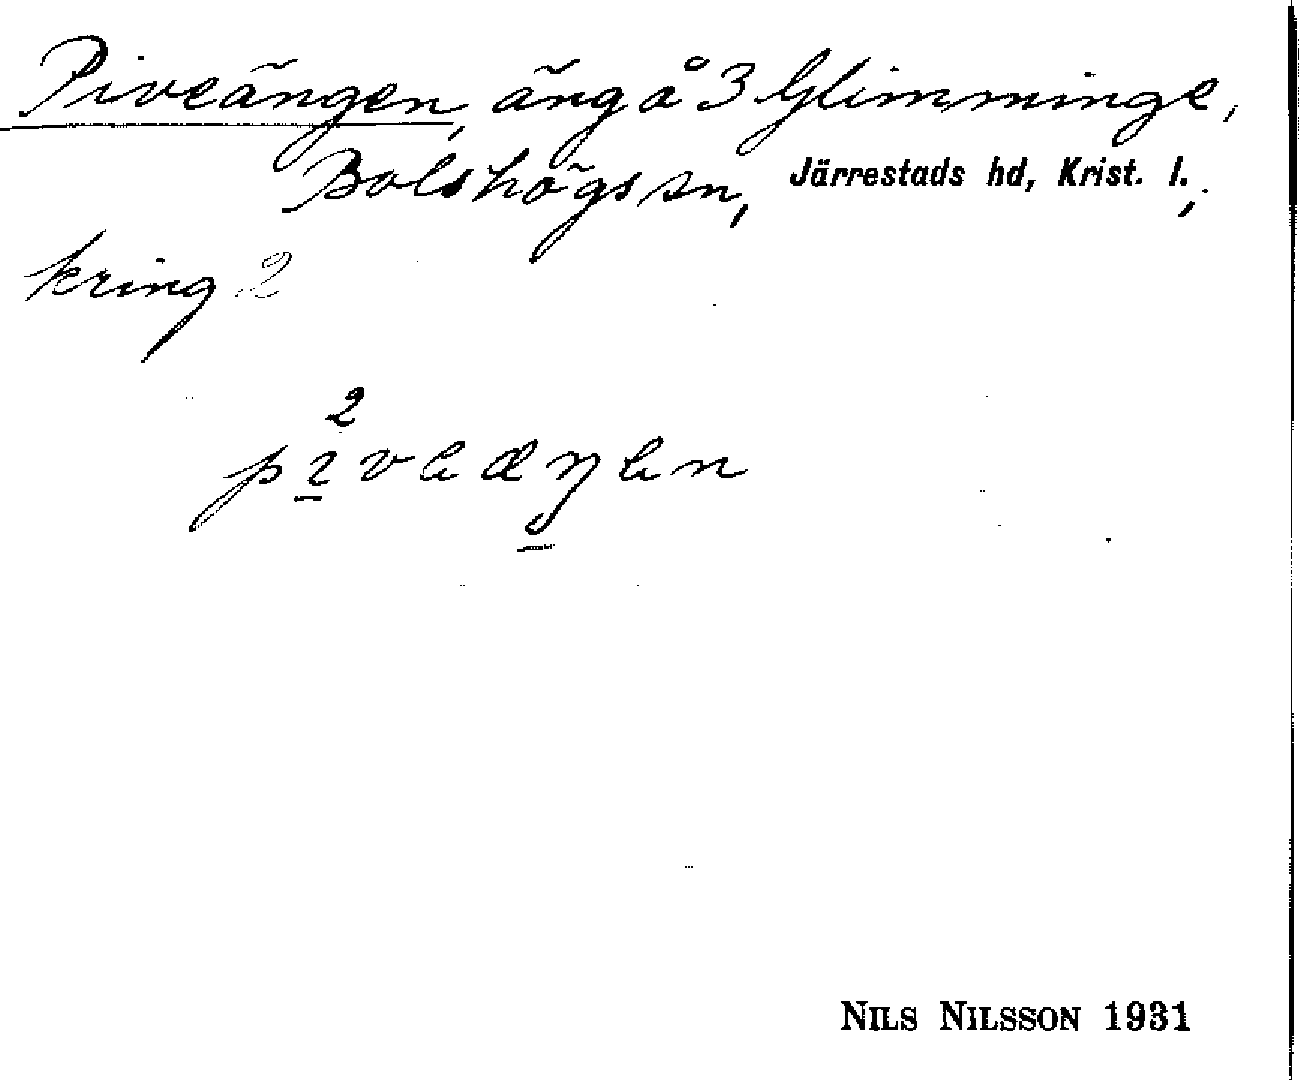 Piveängen, äng å 3 Glimminge,
Bolshögs sn, Järrestads hd, Krist. l.;
kring 2
2
piveæŋen
NILS NILSSON 1931